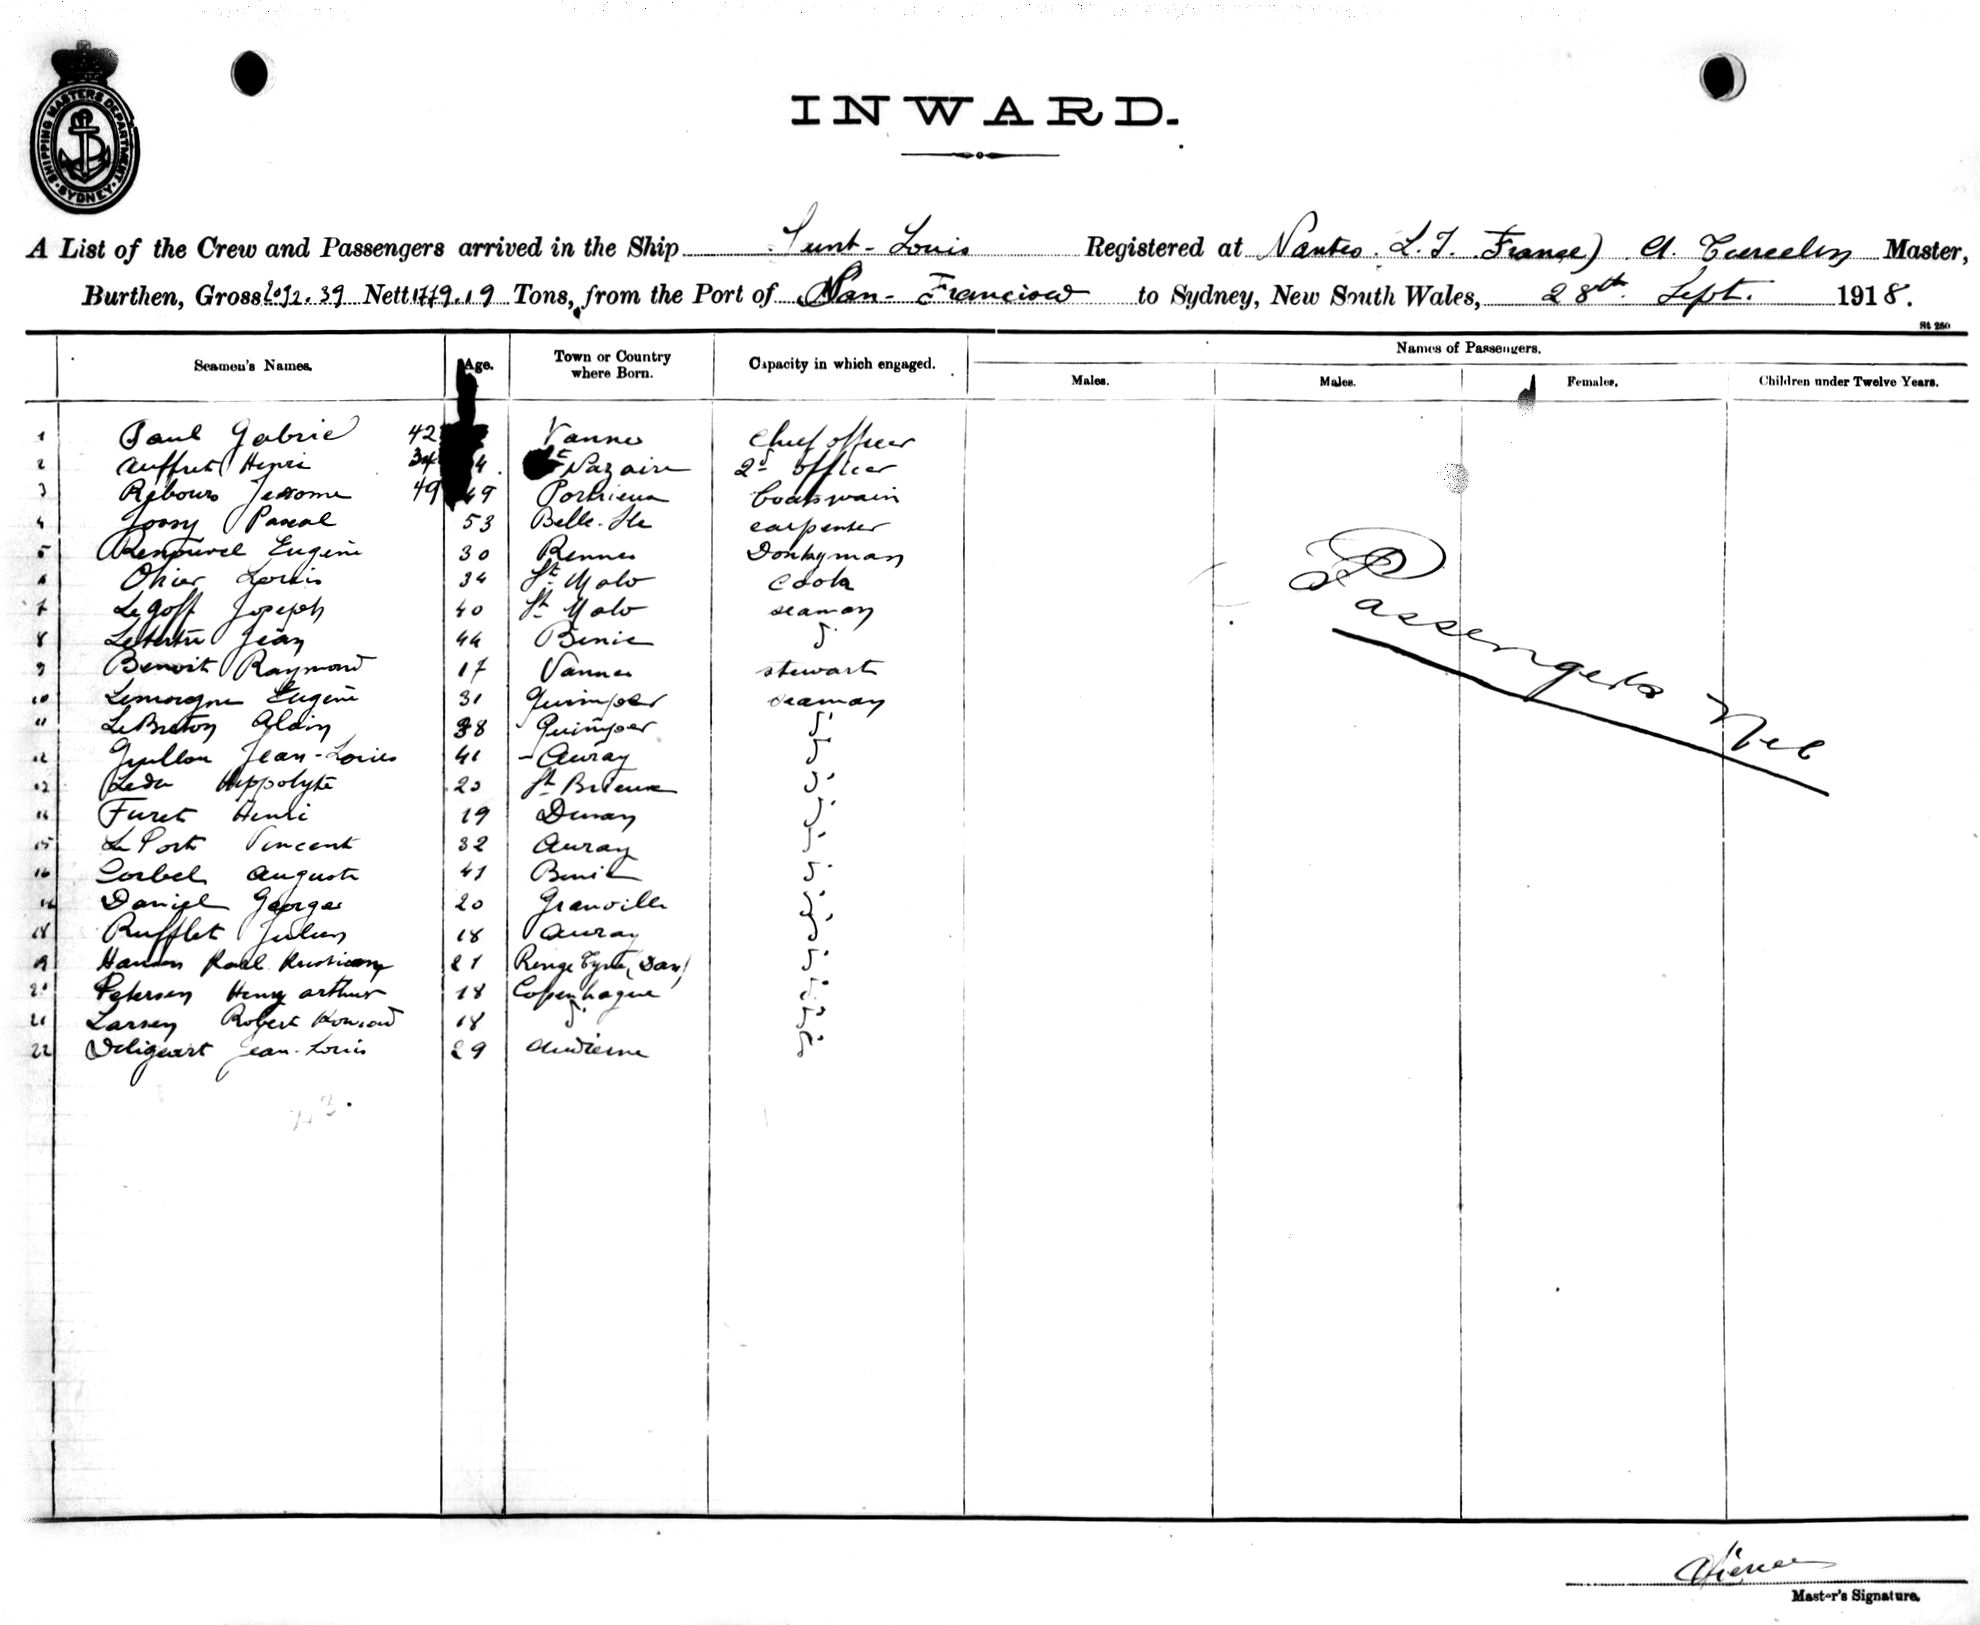 SHIPPING MASTERS DEPARTMENT. SYDNEY.
INWARD.
A List of the Crew and Passengers arrived in the Ship Saint-Louis Registered at Nantes. L.T. France) A. Master,
Burthen, Gross 2092.39 Nett 1779.19 Tons, from the Port of San-Francisco to Sydney, New South Wales, 28th Sept. 1918.
St 250
Seamen's Names. Age. Town or Country where Born. Capacity in which engaged. Names of Passengers.
Males. Males. Females. Children under Twelve Years.
1 Paul Gabriel 42 Vannes Chief officer
2 Auffret Henri 34 St Nazaire 2d officer
3 Rebours Jerome 49 49 Portrieux boatswain
4 Jossy Pascal 53 Belle-Ile carpenter
5 Renouvel Eugène 30 Rennes Donkyman
6 Ohier Louis 34 St Malo Cook
7 Le Goff Joseph 40 St Malo seaman
8 Letertre Jean 44 Binic d°
9 Benoit Raymond 17 Vannes stewart
10 Lemoigne Eugène 31 Quimper seaman
11 Le Breton Alain 38 Quimper d°
12 Guillou Jean-Louis 41 - Auray d°
13 Ledu Hippolyte 20 St Brieuc d°
14 Furet Henri 19 Dinan d°
15 Le Port Vincent 32 Auray d°
16 Corbel Auguste 41 Binic d°
17 Daniel Georges 20 Granville d°
18 Rufflet Julien 18 Auray d°
19 Hansen Karl Kristian 21 Ringe Fyn (Dan) d°
20 Petersen Henry Arthur 18 Copenhague d°
21 Larsen Robert Konrad 18 d° d°
22 Deligeart Jean-Louis 29 Audierne d°
Passengers Nil
Master's Signature.